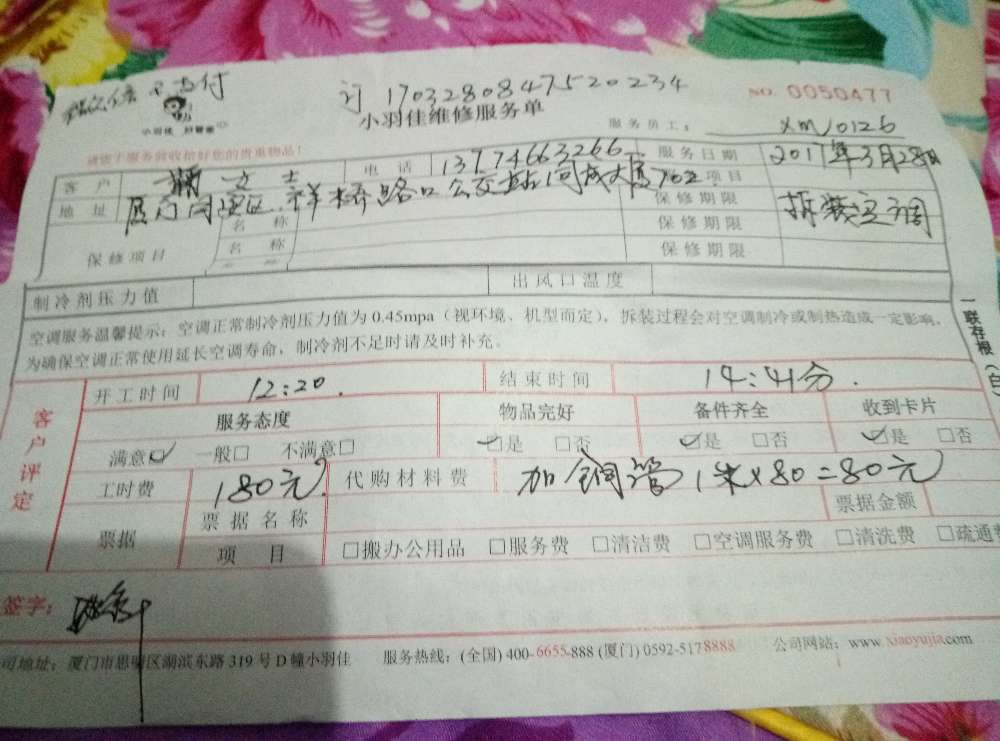 支付
订 1703280847520234
NO. 0050477
小羽佳 好管家
小羽佳维修服务单
服务员工: XM10126
请需于服务前收拾好您的贵重物品!
客户 女士 电话 13774663266 服务日期 2017年3月28日
地址 厦门同安区祥桥路口公交站同成大厦702 项目 拆装空调
保修项目 名称 保修期限
名称 保修期限
保修期限
制冷剂压力值 出风口温度
空调服务温馨提示:空调正常制冷剂压力值为 0.45mpa(视环境、机型而定),拆装过程会对空调制冷或制热造成一定影响,
为确保空调正常使用延长空调寿命,制冷剂不足时请及时补充。
一联存根(白
客户评定
开工时间 12:20. 结束时间 14:41分.
服务态度 物品完好 备件齐全 收到卡片
满意☑ 一般□ 不满意□ ☑是 □否 ☑是 □否 ☑是 □否
工时费 180元 代购材料费 加铜管1米×80=80元
票据 票据名称 票据金额
项目 □搬办公用品 □服务费 □清洁费 □空调服务费 □清洗费 □疏通
签字:
司地址:厦门市思明区湖滨东路 319 号 D 幢小羽佳 服务热线:(全国) 400-6655-888 (厦门) 0592-5178888 公司网站:www.xiaoyujia.com